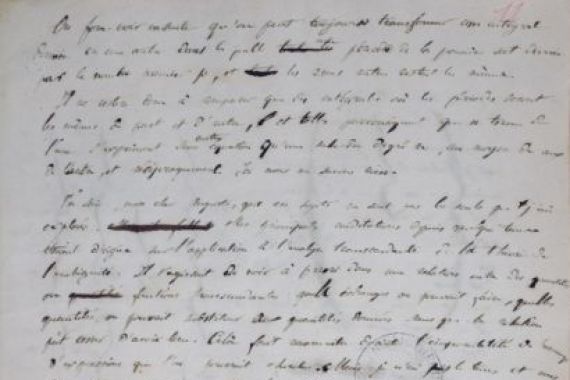 On fait voir ensuite qu'on peut toujours transformer une intégrale
donnée en une autre dans laquelle une période de la première soit divisée
par le nombre premier p, et les autres restent les mêmes.
Il ne restera donc à comparer que des intégrales où les périodes seront
les mêmes de part et d'autre, et telles par conséquent que n termes de
l'une s'expriment sans autre équation qu'une seule du degré n, au moyen de ceux
de l'autre, et réciproquement. Ici nous ne savons rien.
Tu sais, mon cher Auguste, que ces sujets ne sont pas les seuls que j'aie
explorés. Mes principales méditations depuis quelque temps
étaient dirigées sur l'application à l'analyse transcendante de la théorie de
l'ambiguité. Il s'agissait de voir à priori dans une relation entre des quantités
ou fonctions transcendantes quels échanges on pouvait faire, quelles
quantités on pouvait substituer aux quantités données sans que la relation
pût cesser d'avoir lieu. Cela fait reconnaitre l'impossibilité de beaucoup
d'expressions que l'on pourrait chercher. Mais je n'ai pas le temps et mes